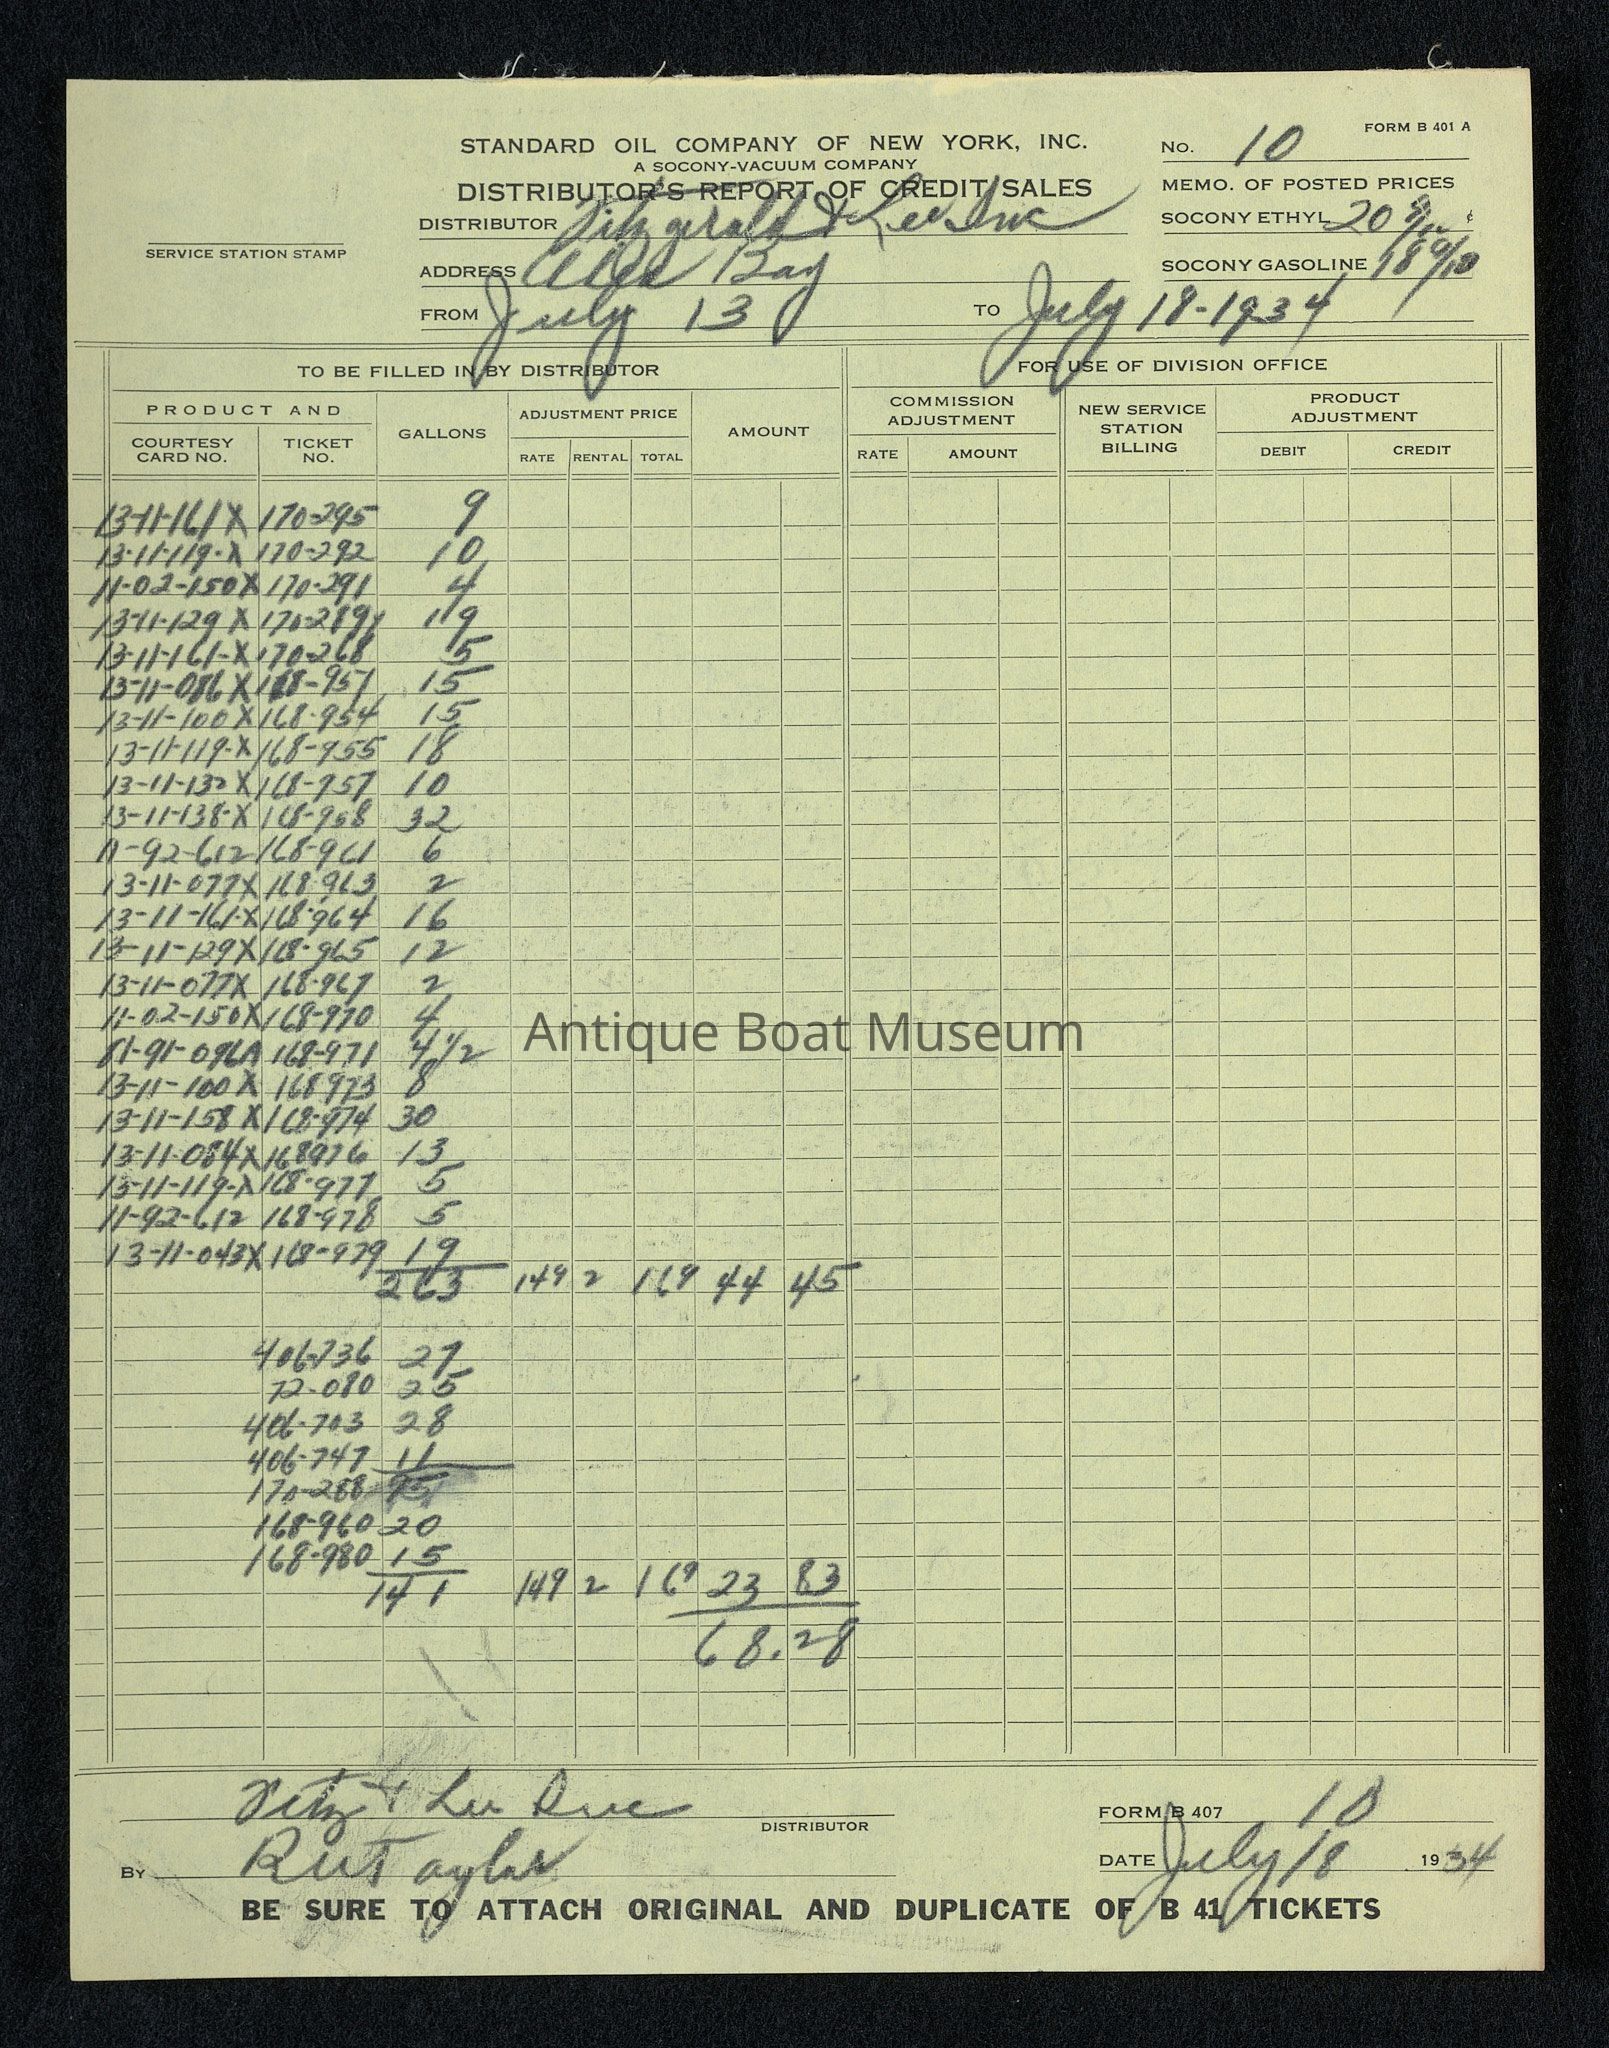 FORM B 401 A
STANDARD OIL COMPANY OF NEW YORK, INC.
A SOCONY-VACUUM COMPANY
DISTRIBUTOR'S REPORT OF CREDIT SALES
No. 10
MEMO. OF POSTED PRICES
SERVICE STATION STAMP
DISTRIBUTOR Fitzgerald & Lee Inc
SOCONY ETHYL 20 9/10 ¢
ADDRESS Alex Bay
SOCONY GASOLINE 18 9/10
FROM July 13 TO July 18-1934
TO BE FILLED IN BY DISTRIBUTOR FOR USE OF DIVISION OFFICE
PRODUCT AND GALLONS ADJUSTMENT PRICE AMOUNT COMMISSION ADJUSTMENT NEW SERVICE STATION BILLING PRODUCT ADJUSTMENT
COURTESY CARD NO. TICKET NO. RATE RENTAL TOTAL RATE AMOUNT DEBIT CREDIT
13-11-161X 170-295 9
13-11-119-X 170-292 10
11-02-150X 170-291 4
13-11-129 X 170-289 19
13-11-161-X 170-268 5
13-11-086 X 168-951 15
13-11-100X 168-954 15
13-11-119-X 168-955 18
13-11-132X 168-957 10
13-11-138-X 168-958 32
11-92-612 168-961 6
13-11-077X 168-963 2
13-11-161-X 168-964 16
13-11-129X 168-965 12
13-11-077X 168-967 2
11-02-150X 168-970 4
11-91-096A 168-971 4 1/2
13-11-100 X 168973 8
13-11-158 X 168-974 30
13-11-084X 168976 13
13-11-119-X 168-977 5
11-92-612 168-978 5
13-11-043X 168-979 19
263 149 2 169 44 45
406-736 27
72-080 25
406-703 28
406-747 11
170-288 15
168-960 20
168-980 15
141 149 2 169 23 83
68.28
Fitz & Lee Inc
DISTRIBUTOR
FORM B 407 10
BY R W Taylor
DATE July 18 1934
BE SURE TO ATTACH ORIGINAL AND DUPLICATE OF B 41 TICKETS
Antique Boat Museum